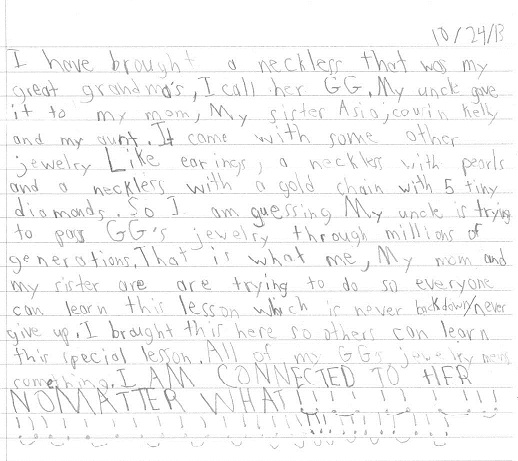 10/24/13
I have brought a neckless that was my
great grandma's, I call her GG. My uncle gave
it to my mom, My sister Asia, cousin kelly
and my aunt. It came with some other
jewelry Like earings, a neckless with pearls
and a neckless with a gold chain with 5 tiny
diamonds. So I am guessing My uncle is trying
to pass GG's jewelry through millions of
generations. That is what me, My mom and
my sister are are trying to do so everyone
can learn this lesson which is never backdown/never
give up. I brought this here so others can learn
this special lesson. All of my GG's jewelry
something. I AM CONNECTED TO HER
NOMATTER WHAT!!!!!!!!!!